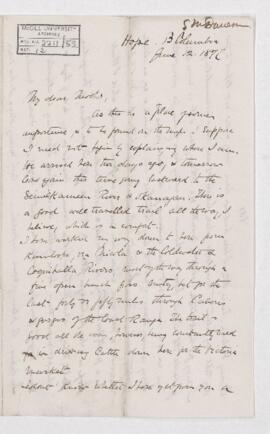 McGILL UNIVERSITY
ARCHIVES
ACC. NO. 2211 / 55
REF. 12
G M Dawson
Hope, B Columbia
June 12 1877
My dear Mother,
As this is a place of some
importance & is to be found on the maps I suppose
I need not begin by explaining where I am.
We arrived here two days ago, & tomorrow
leave again this time going eastward to the
Similkameen River & Okanagan. There is
a good well travelled trail all the way, I
believe, which is a comfort.
I have worked my way down to here from
Kamloops, via Nicola & the Coldwater &
Coquihalla Rivers, most of the way through a
fine open bunch grass country, but for the
last forty or fifty miles through Canons
& gorges of the Coast Range. The trail is
good all the way, however, being constantly used
in driving Cattle down here for the Victoria
market
I dont know whether I have yet given you a